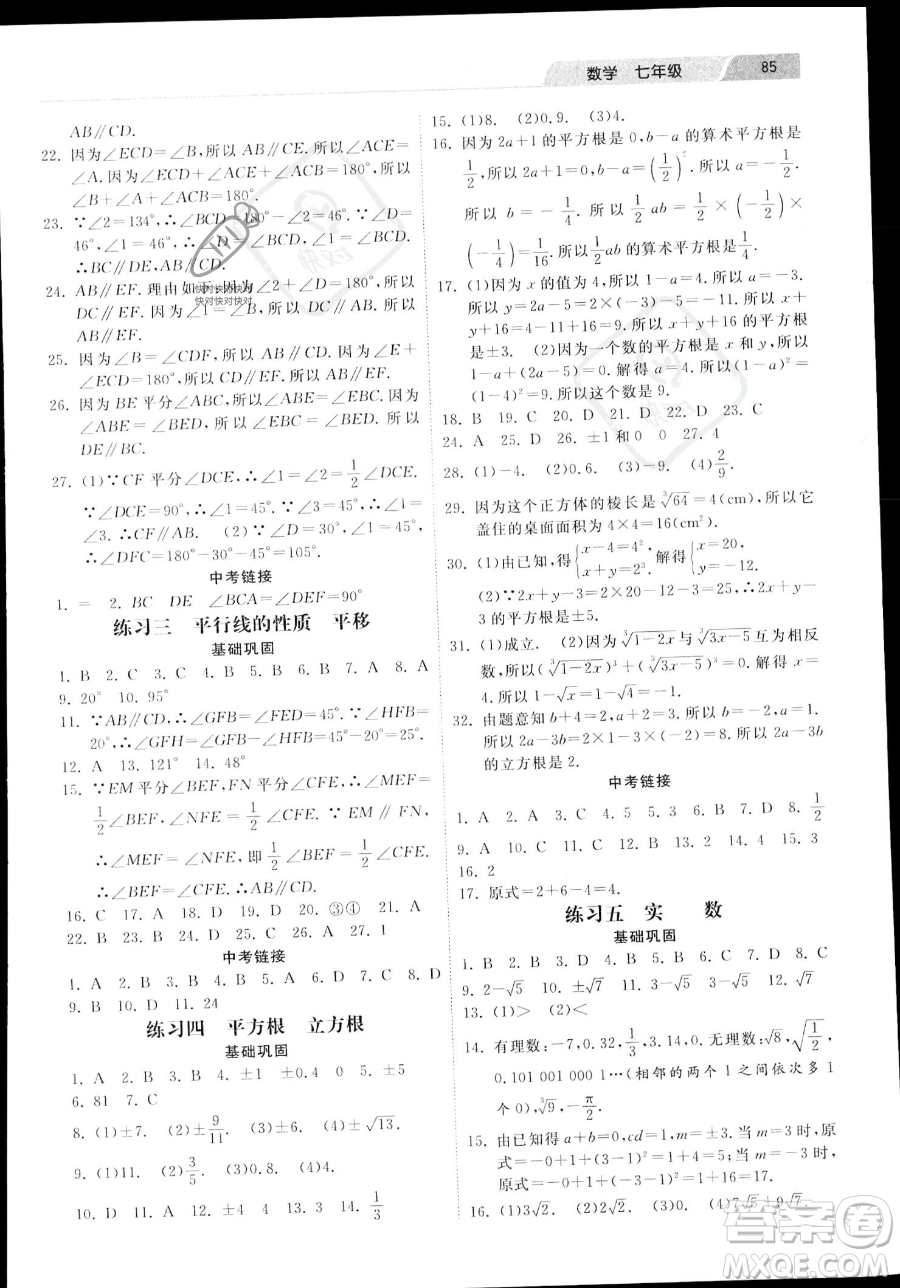 数学 七年级 85
AB∥CD.
22. 因为∠ECD=∠B,所以 AB∥CE.所以∠ACE=
∠A.因为∠ECD+∠ACE+∠ACB=180°,所以
∠B+∠A+∠ACB=180°.
23. ∵∠2=134°,∴∠BCD=180°-∠2=46°.∵∠D=
46°,∠1=46°,∴∠D=∠BCD,∠1=∠BCD.
∴BC∥DE,AB∥CD.
24. AB∥EF.理由如下:因为∠2+∠3=180°,所以
DC∥EF.因为∠1=∠B,所以 AB∥DC.所以 AB∥
EF.
25. 因为∠B=∠CDF,所以 AB∥CD.因为∠E+
∠ECD=180°,所以 CD∥EF.所以 AB∥EF.
26. 因为 BE 平分∠ABC,所以∠ABE=∠EBC.因为
∠ABE=∠E,所以∠EBC=∠ABE=∠E.所以
DE∥BC.
27. (1)∵CF 平分∠DCE,∴∠1=∠2=1/2∠DCE.
∵∠DCE=90°,∴∠1=45°.∵∠3=45°,∴∠1=
∠3.∴CF∥AB. (2)∵∠D=30°,∠1=45°,
∴∠DFC=180°-30°-45°=105°.
中考链接
1. = 2. BC DE ∠BCA=∠DEF=90°
练习三 平行线的性质 平移
基础巩固
1. B 2. C 3. C 4. B 5. B 6. B 7. A 8. C
9. 20° 10. 95°
11. ∵AB∥CD,∴∠GFB=∠FED=45°.∵∠HFB=
20°,∴∠GFH=∠GFB-∠HFB=25°.
12. A 13. 121° 14. 68°
15. ∵EM 平分∠BEF,FN 平分∠CFE,∴∠MEF=
1/2∠BEF,∠NFE=1/2∠CFE.∵EM∥FN,
∴∠MEF=∠NFE,即 1/2∠BEF=1/2∠CFE.
∴∠BEF=∠CFE.∴AB∥CD.
16. C 17. A 18. D 19. D 20. ③④ 21. A
22. B 23. D 24. D 25. A 26. C 27. 1
中考链接
1. A 2. D 3. B 4. B 5. B 6. A 7. D 8. D
9. B 10. D 11. 24
练习四 平方根 立方根
基础巩固
1. A 2. B 3. B 4. ±1 ±0.4 0 5. ±5
6. 81 7. C
8. (1)±7. (2)±9/11. (3)±0.6. (4)±√13.
9. (1)11. (2)±3/5. (3)0.8. (4)4.
10. D 11. D 12. ±4 4 13. D 14. 1/3
15. (1)8. (2)0.9. (3)4.
16. 因为 2a+1 的平方根是 0,b-a 的算术平方根是
1/2,所以 2a+1=0,b-a=(1/2)².所以 a=-1/2.
所以 b=-1/4.所以 1/2ab=1/2×(-1/2)×
(-1/4)=1/16.所以 1/2ab 的算术平方根是 1/4.
17. (1)因为 x 的值为 4,所以 1-a=4.解得 a=-3.
所以 y=2a-5=2×(-3)-5=-11.所以 x+
y+16=4-11+16=9.所以 x+y+16 的平方根
是±3. (2)因为一个数的平方根是 x 和 y,所以
1-a+(2a-5)=0.解得 a=4.所以(1-a)²=
(1-4)²=9.所以这个数是 9.
18. B 19. C 20. C 21. D 22. D 23. C
24. A 25. D 26. ±1 和 0 0 27. 4
28. (1)-4. (2)0.6. (3)-1. (4)2/9.
29. 因为这个正方体的棱长是∛64=4(cm),所以它
盖住的桌面面积为 4×4=16(cm²).
30. (1)由已知,得{x-4=4², x+y=2³. 解得{x=20, y=-12.
(2)因为 2x+y-3=2×20-12-3=25,所以 2x+y-
3 的平方根是±5.
31. (1)成立. (2)因为∛(1-2x)与∛(3x-5)互为相反
数,所以(∛(1-2x))³+(∛(3x-5))³=0.解得 x=
4.所以 1-√x=1-√4=-1.
32. 由题意知 b+4=2,a+2=3.所以 b=-2,a=1.
所以 2a-3b=2×1-3×(-2)=8.所以 2a-3b
的立方根是 2.
中考链接
1. A 2. A 3. C 4. 5 5. 3 6. B 7. D 8. 1/2
9. A 10. C 11. D 12. B 13. 2 14. 4 15. 3
16. 2
17. 原式=2+6-4=4.
练习五 实 数
基础巩固
1. B 2. B 3. C 4. D 5. B 6. D 7. B 8. C
9. 2-√5 10. ±√5 11. D 12. B
13. (1)> (2)<
14. 有理数:-7,0.32,1/3,√16,0.无理数:√8,√(1/2),
0.101 001 000 1…(相邻的两个 1 之间依次多 1
个 0),∛9,-π/2.
15. 由已知得 a+b=0,cd=1,m=±3.当 m=3 时,原
式=-0+1+(3-1)²=1+4=5;当 m=-3 时,原
式=-0+1+(-3-1)²=1+16=17.
16. (1)3√2. (2)2√2. (3)0. (4)7√5+2√7.
快对快对快对
快对快对快对
答案圈
MXQE.COM